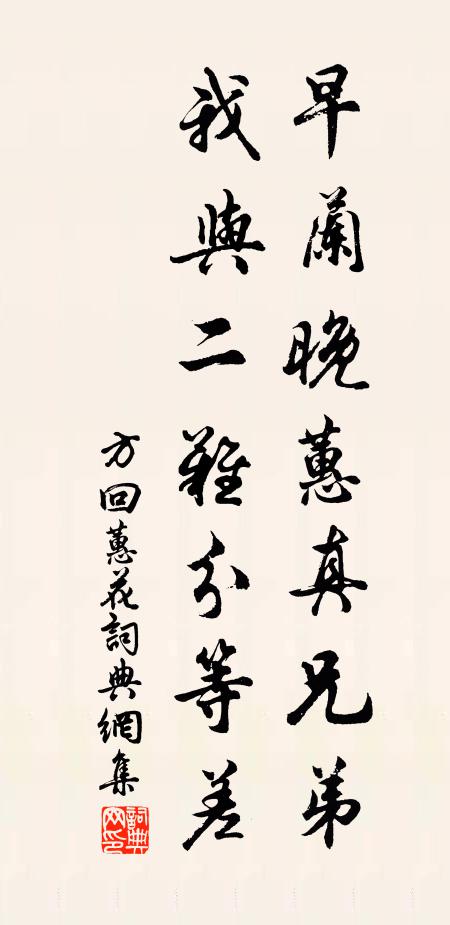 早蘭晚蕙真兄弟
我與二難分等差
方回蕙花詞典網集
詞典網印